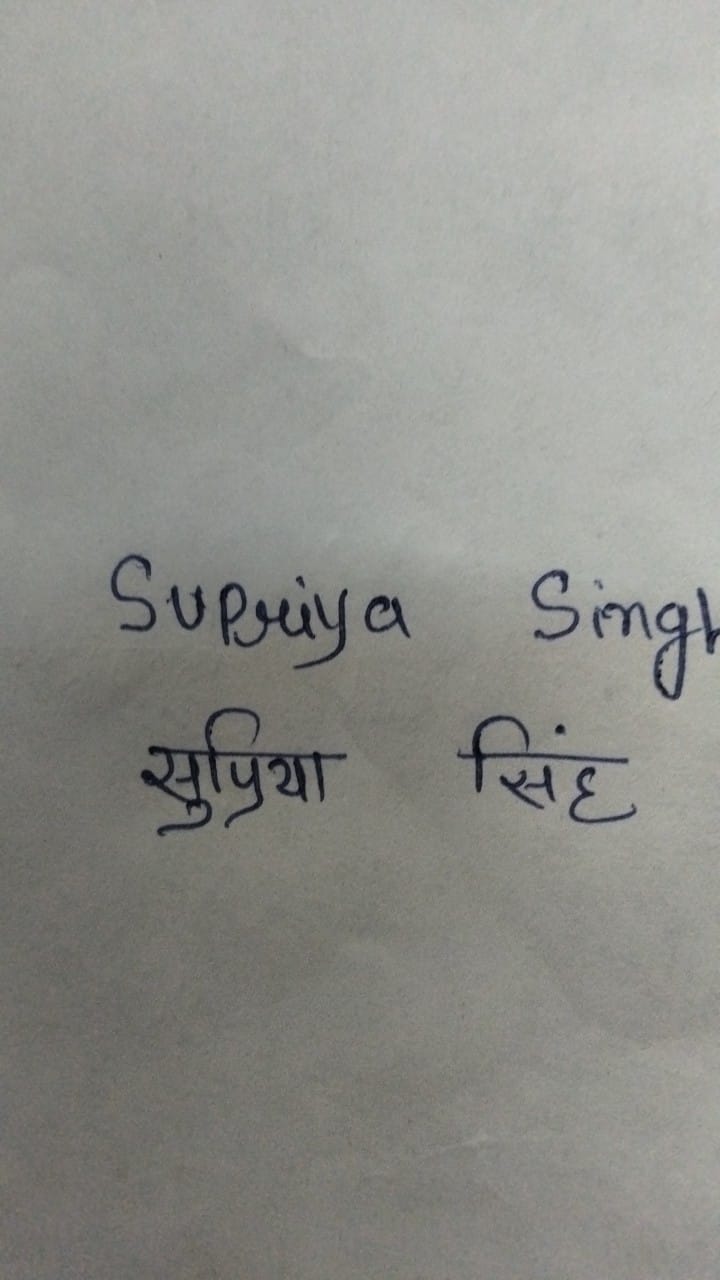 Supriya Singh
सुप्रिया सिंह